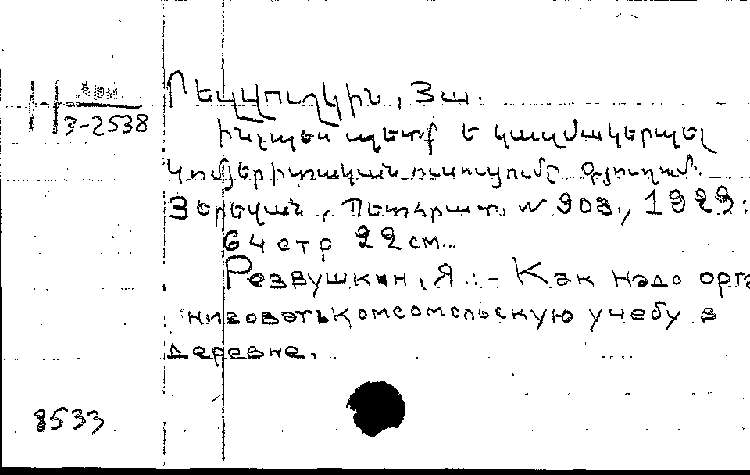 II
3-2538
Րեզվուշկին, Յա.
Ինչպես պետք է կազմակերպել
կոմյերիտական ուսուցումը գյուղում
Յերեվան, Պետհրատ. 1929:
64 стр 22 см.
Резвушкин, Я. - Как надо орга
низовать комсомольскую учебу в
деревне.
8533